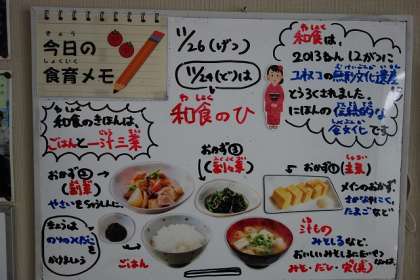 きょう
今日の
しょくいく
食育メモ
11/26(げつ)
11/24(ど)は
わ しょく
和食のひ
わ しょく
和食は、
2013ねん 12がつに
ユネスコの無形文化遺産に
とうろくされました。
にほんの伝統的な
食文化です
わ しょく
和食のきほんは、
ごはんと一汁三菜
おかず②
(副菜)
やさいを
おかず③
(副副菜)
おかず①
(主菜)
メインのおかず。
さかなやにく、
たまごなど
きょうは
のりのつくだに
をかけましょう
ごはん
汁もの
みそしるなど。
おいしいみそしるの
み・だし・